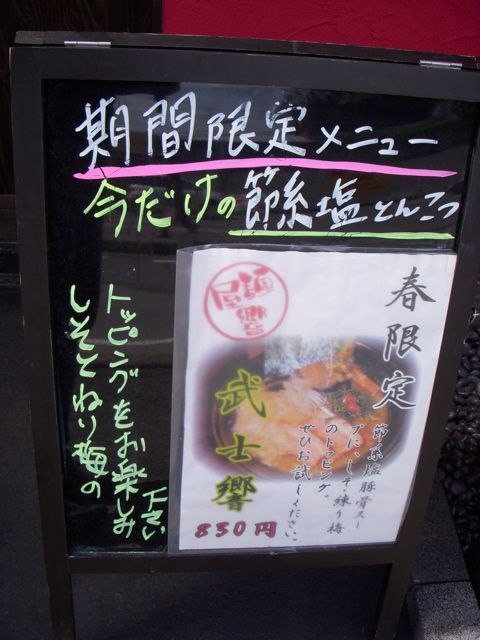 期間限定メニュー
今だけの節系塩とんこつ
しそとねり梅の
トッピングをお楽しみ
下さい
麺屋響
春限定
武士響
節系塩豚骨スー
プに、しそ練り梅
のトッピング。
ぜひお試しください。
830円